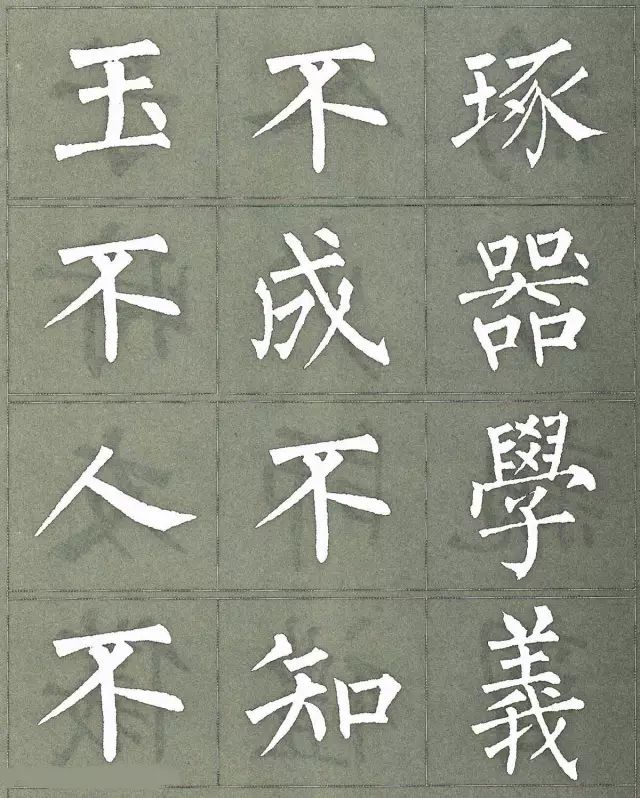 玉不琢
不成器
人不學
不知義